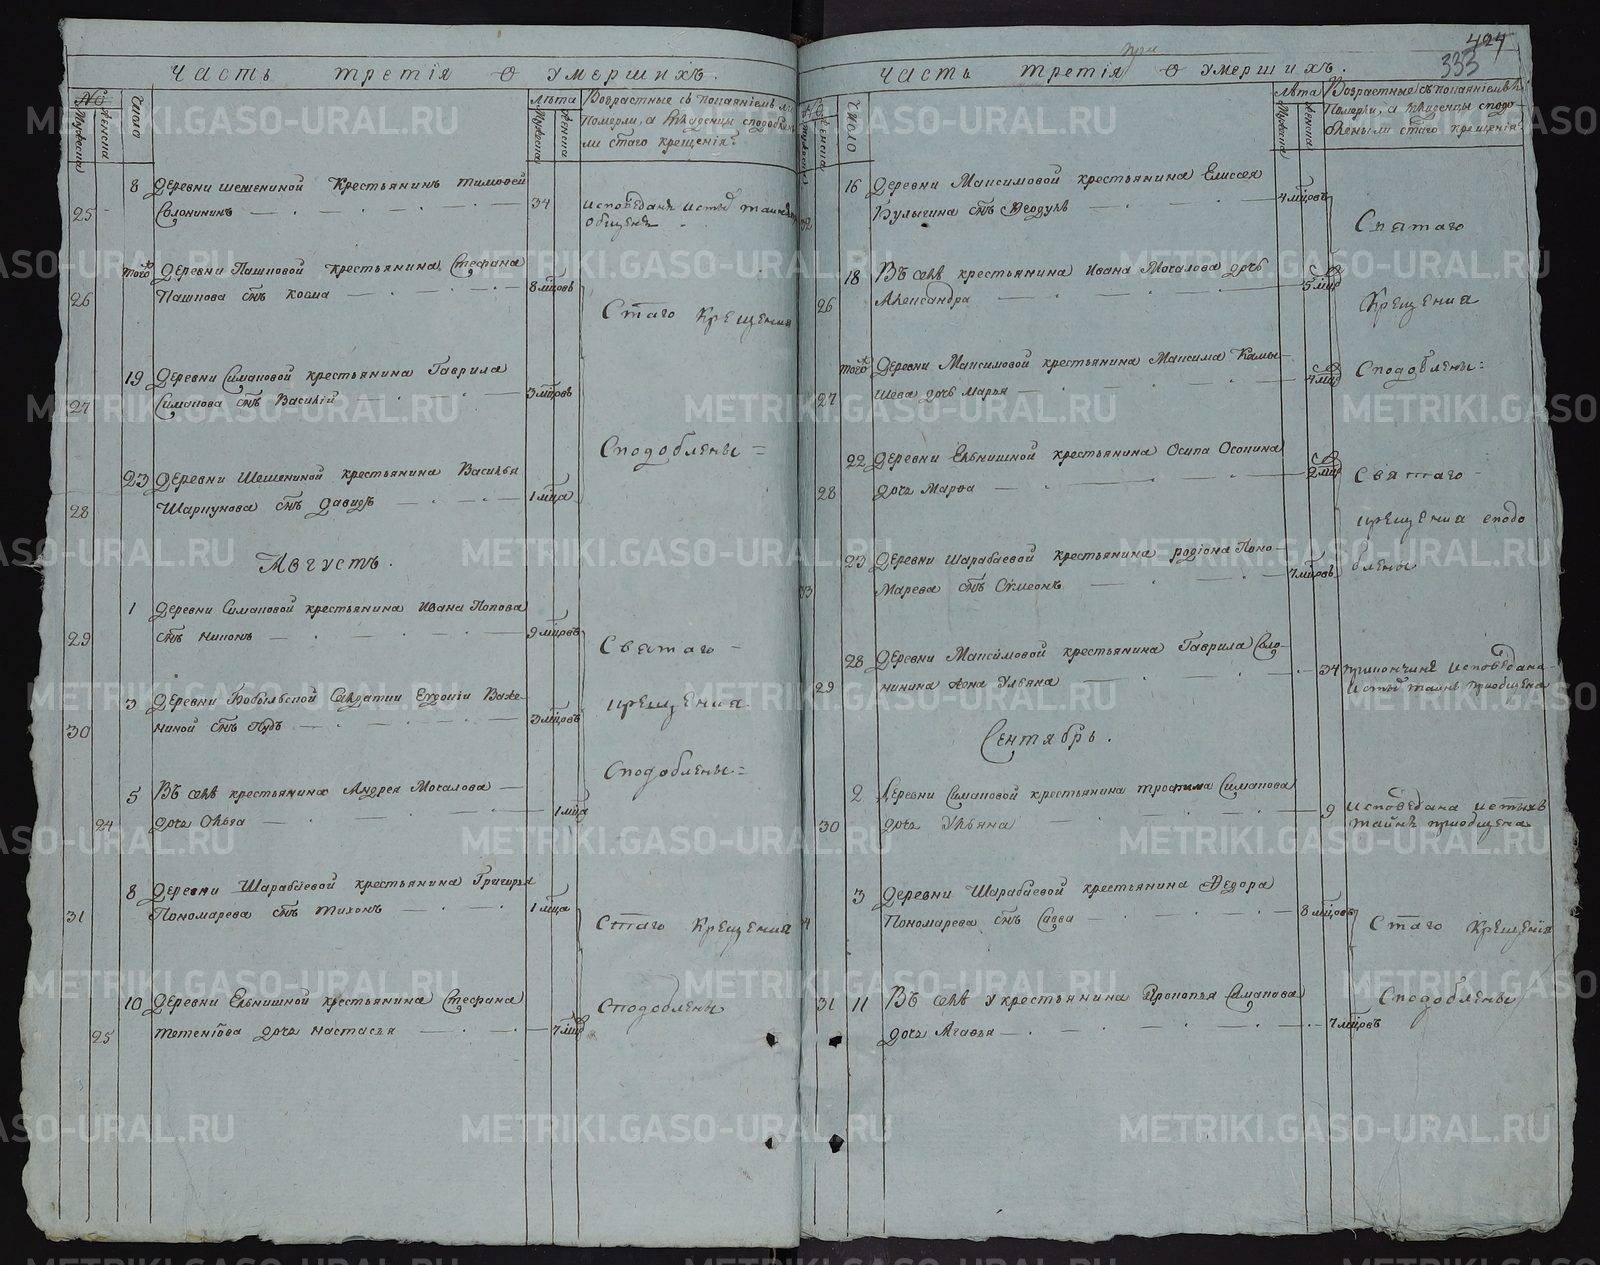 Часть третія о умершихъ.
№
Мужеска
Женска
Число
Лѣта
Мужеска
Женска
Возрастные съ покаяніемъ ли
Померли, а Младенцы сподоблены
ли стаго крещенія?
25
8
Деревни Шешениной Крестьянинъ Тимофей
Солонининъ
34
исповѣданъ и стыхъ таинъ
общенъ
26
того
Деревни Пашковой крестьянина Стефана
Пашкова снъ Козма
8 мцовъ
Стаго Крещения
27
19
Деревни Симановой крестьянина Гаврила
Симанова снъ Василій
3 мцовъ
Сподоблены
28
23
Деревни Шешениной крестьянина Василья
Шаркунова снъ Давидъ
1 мца
Августъ.
29
1
Деревни Симановой крестьянина Ивана Попова
снъ Никонъ
9 мцовъ
Святаго
30
3
Деревни Бобыльской Солдатки Евдокіи Важе-
ниной снъ Пудъ
3 мцовъ
крещения
24
5
Въ селѣ крестьянина Андрея Мочалова
дочь Ольга
1 мца
Сподоблены
31
8
Деревни Шарабаевой крестьянина Григорья
Пономарева снъ Тихонъ
1 мца
Стаго Крещения
25
10
Деревни Ельнишной крестьянина Стефана
дочь Настасья
7 мцов
Сподоблены
424
333
Часть третія о умершихъ.
Число
Лѣта
Мужеска
Женска
Возрастные съ покаяніемъ ли
Померли, а Младенцы сподо-
блены ли стаго крещенія?
32
16
Деревни Максимовой крестьянина Елисея
Булыгина снъ Феодулъ
4 мцовъ
Святаго
26
18
Въ селѣ крестьянина Ивана Мочалова дочь
Александра
5 мцов
Крещения
27
того
Деревни Максимовой крестьянина Максима Камы-
шева дочь Марья
4 мцов
Сподоблены
28
22
Деревни Ельнишной крестьянина Осипа Осокина
дочь Марфа
2 мцов
Святаго
крещения сподо
блены
33
23
Деревни Шарабаевой крестьянина Родіона Поно-
марева снъ Симеонъ
7 мцовъ
29
28
Деревни Максимовой крестьянина Гаврила Соло-
нинина жена Ульяна
34
исповѣдана
и стыхъ таинъ приобщена
Сентябрь.
30
2
Деревни Симановой крестьянина Трофима Симанова
дочь Ульяна
9
исповѣдана и стыхъ
таинъ приобщена
34
3
Деревни Шарабаевой крестьянина Федора
Пономарева снъ Савва
8 мцовъ
Стаго Крещения
31
11
Въ селѣ у крестьянина Прокопья Симанова
дочь Агафья
7 мцовъ
Сподоблены
METRIKI.GASO-URAL.RU